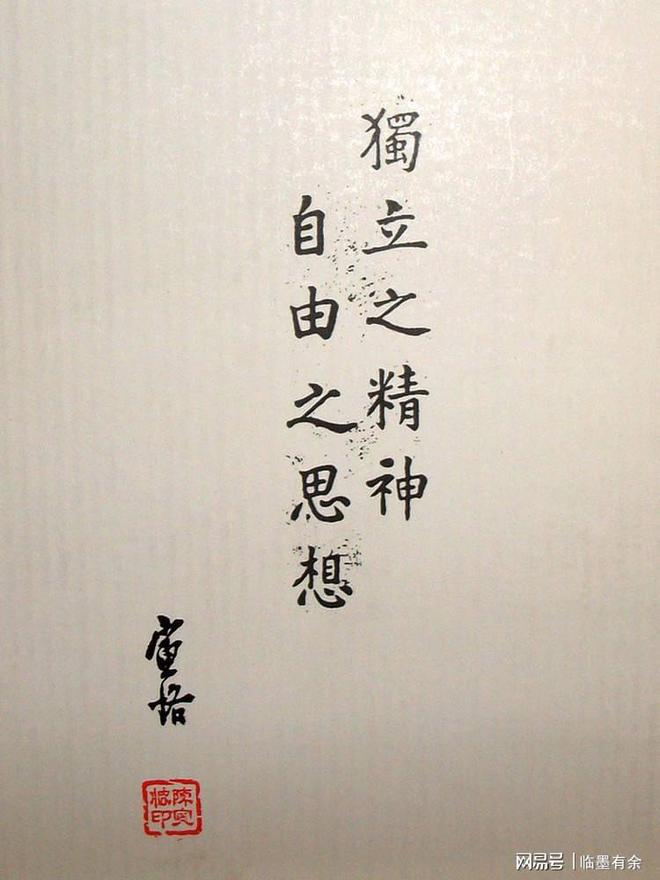 獨立之精神
自由之思想
寅恪
陳寅
恪印
网易号 | 临墨有余